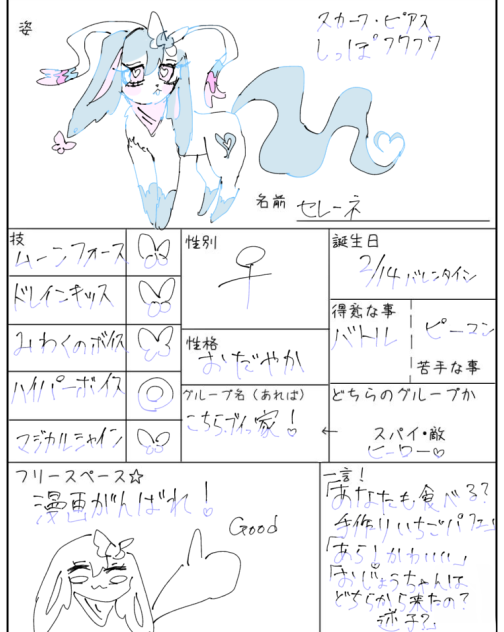 姿
スカーフ・ピアス
しっぽフワフワ
名前 セレーネ
技
ムーンフォース
ドレインキッス
みわくのボイス
ハイパーボイス
マジカルシャイン
性別
♀
性格
おだやか
グループ名（あれば）
こちらブイっ家！♡
誕生日
2/14 バレンタイン
得意な事
バトル
ピーマン
苦手な事
どちらのグループか
← スパイ・敵
ヒーロー♡
フリースペース☆
漫画がんばれ！
Good
一言！
「あなたも食べる？
手作りいちごパフェ」
「あら！かわいい」
「おじょうちゃんは
どちらから来たの？
迷子？